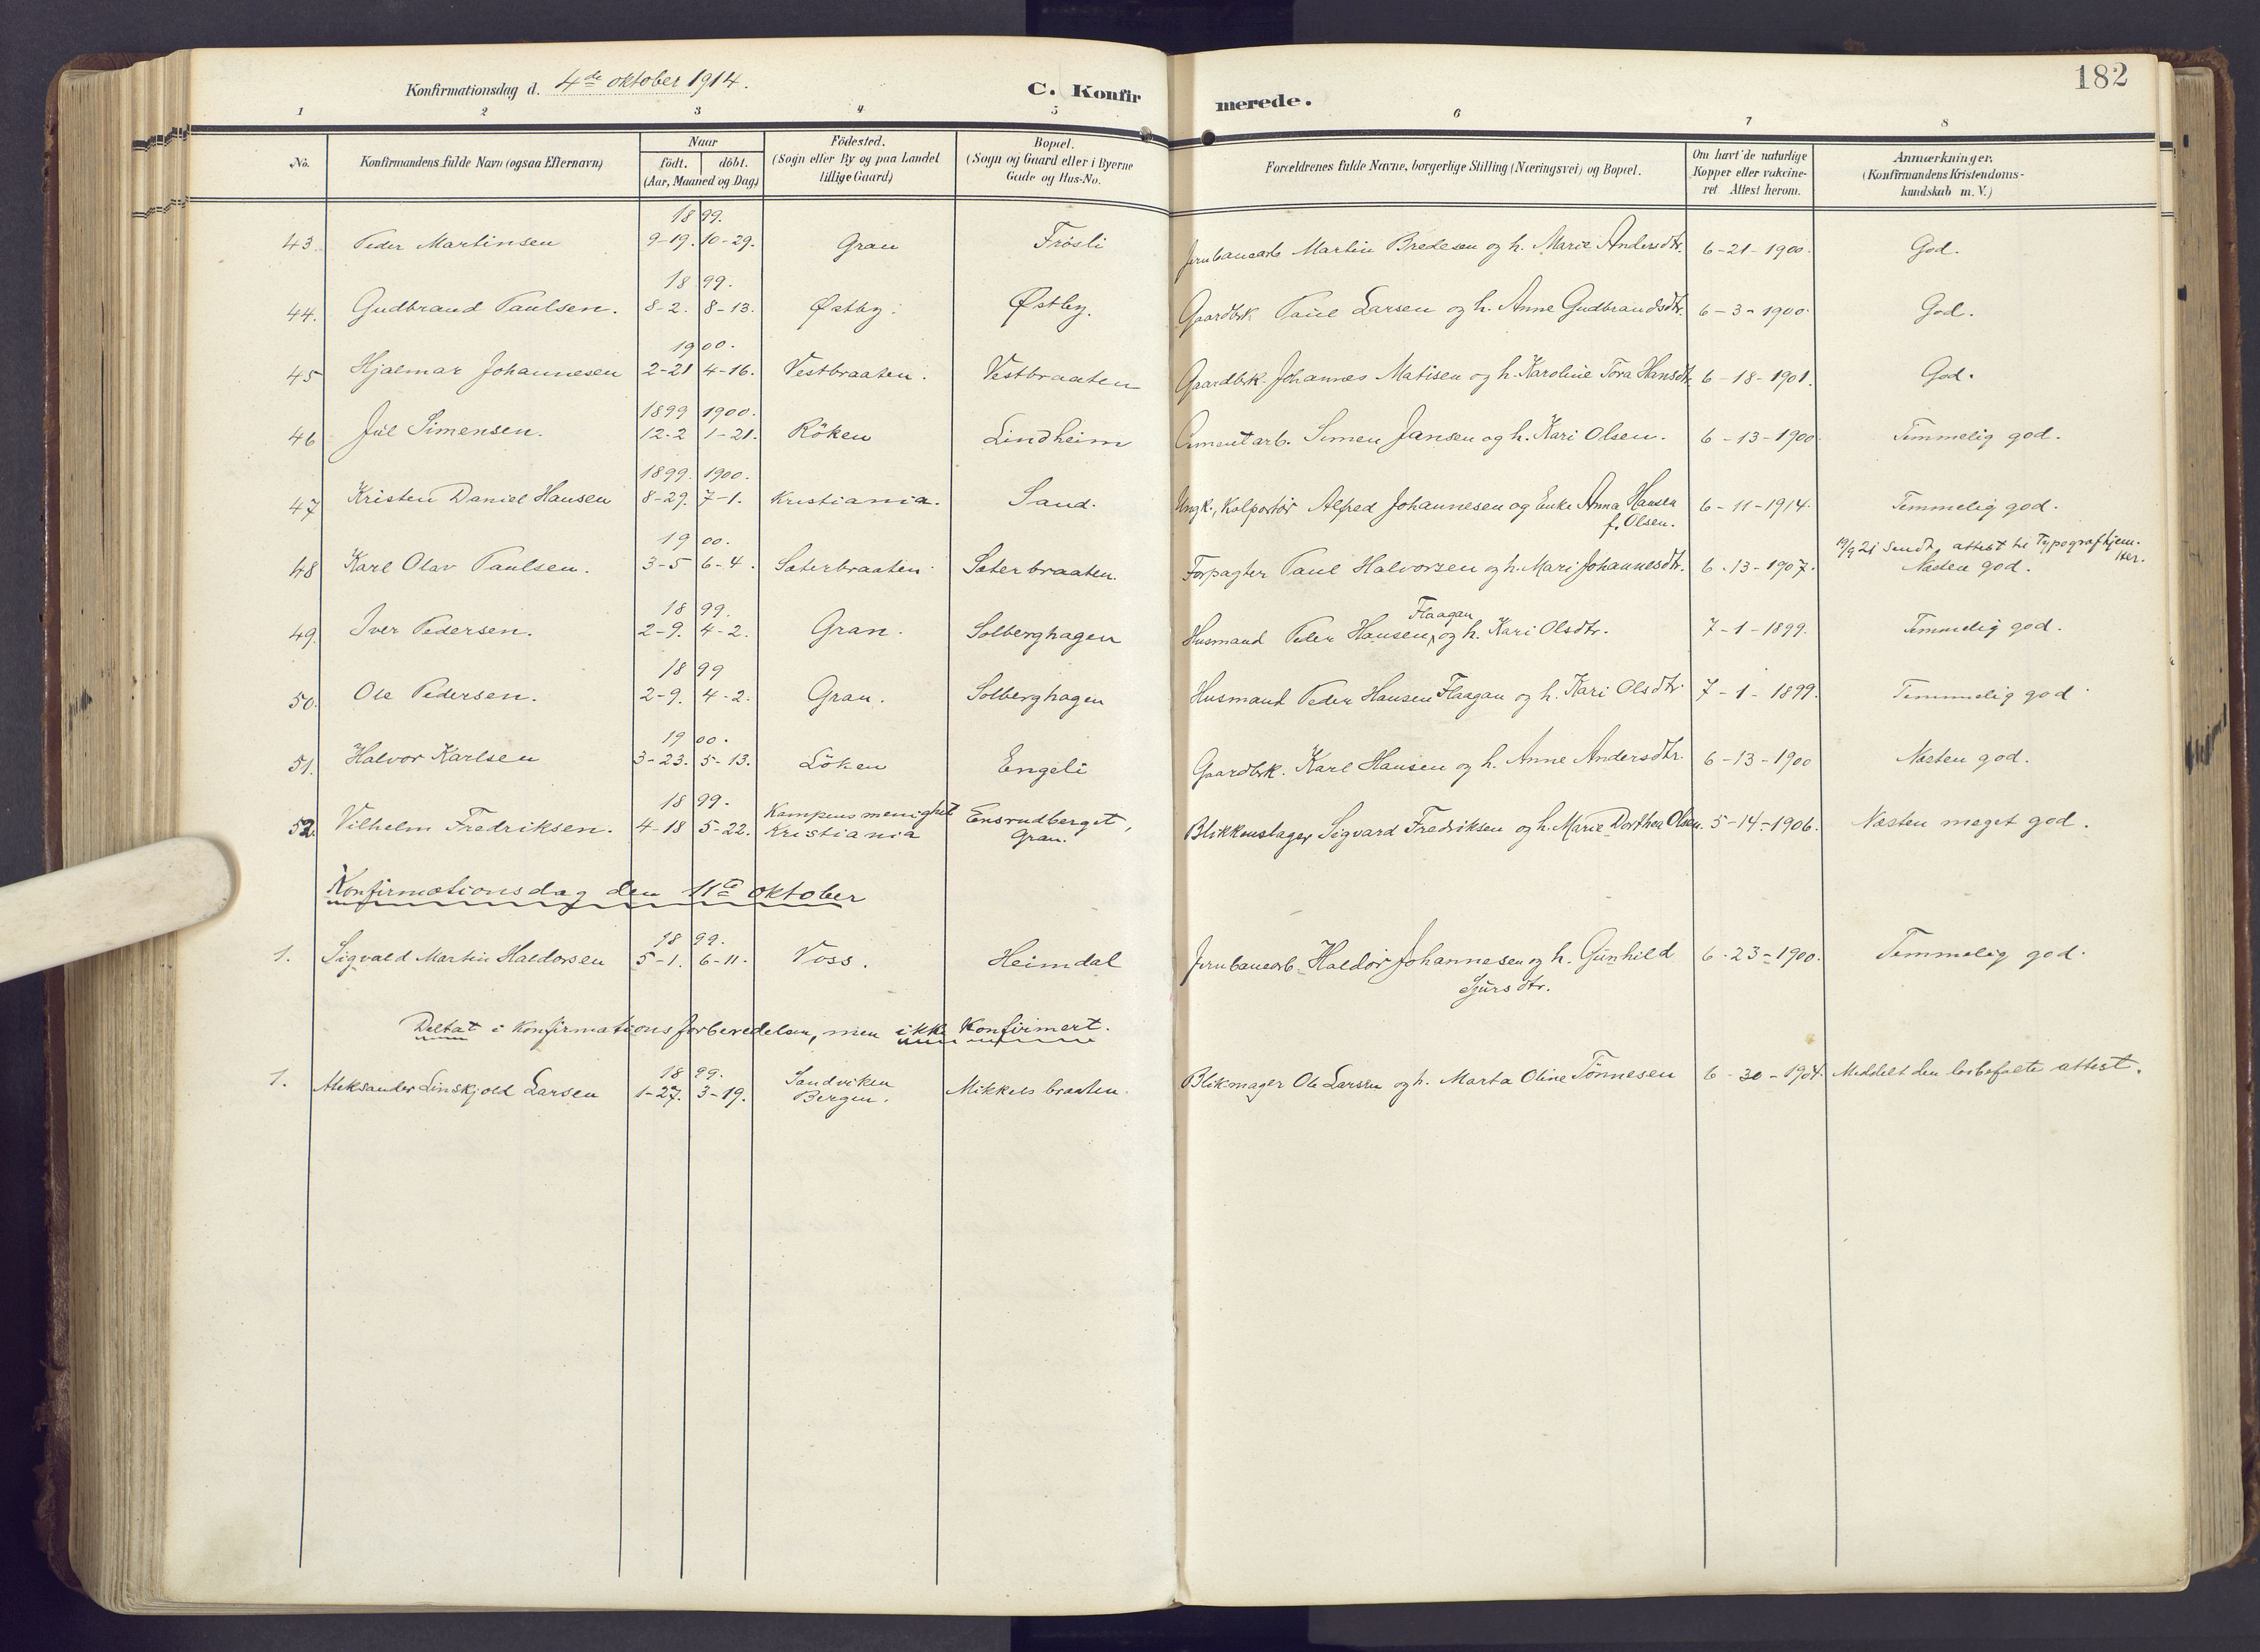 182
Konfirmationsdag d. 4de oktober 1914.
C. Konfirmerede.
1 2 3 4 5 6 7 8
No. | Konfirmandens fulde Navn (ogsaa Efternavn) | Naar födt. döbt. (Aar, Maaned og Dag) | Födested. (Sogn eller By og paa Landet tillige Gaard) | Bopæl. (Sogn og Gaard eller i Byerne Gade og Hus-No. | Forældrenes fulde Navne, borgerlige Stilling (Næringsvei) og Bopæl. | Om havt de naturlige Kopper eller vakcineret Attest herom. | Anmærkninger. (Konfirmandens Kristendomskundskab m. V.)
1899.
43. Peder Martinsen 9-19. 10-29. Gran Frösli Jernbanearb Martin Bredesen og h. Marie Andersdtr. 6-21-1900. God.
1899.
44. Gudbrand Paulsen. 8-2. 8-13. Østby. Østby. Gaardbrk Paul Larsen og h. Anne Gudbrandsdtr. 6-3-1900. God.
1900.
45 Hjalmar Johannesen 2-21 4-16. Vestbraaten. Vestbraaten Gaardbrk. Johannes Matisen og h. Karoline Tora Hansdtr. 6-18-1901. God.
1899 1900.
46 Jul Simensen. 12-2 1-21. Röken Lindheim Cementarb. Simen Jansen og h. Kari Olsen. 6-13-1900. Temmelig god.
1899. 1900.
47 Kristen Daniel Hansen 8-29. 7-1. Kristiania. Sand. Ungk., Kolportör Alfred Johannesen og Enke Anna Hansen 6-11-1914. Temmelig god.
f. Olsen.
1900. 19/9 21 sendt attest til Typografhjem-
48 Karl Olav Paulsen. 3-5 6-4. Sæterbraaten. Sæterbraaten. Forpagter Paul Halvorsen og h. Mari Johannesdtr. 6-13-1907. Næsten god.
1899. Flaagan
49. Iver Pedersen. 2-9. 4-2. Gran. Solberghagen Husmand Peder Hansen, og h. Kari Olsdtr. 7-1-1899. Temmelig god.
1899
50. Ole Pedersen. 2-9. 4-2. Gran. Solberghagen Husmand Peder Hansen Flaagan og h. Kari Olsdtr 7-1-1899. Temmelig god.
1900.
51. Halvor Karlsen 3-23. 5-13. Löken Engeli Gaardbrk. Karl Hansen og h. Anne Andersdtr. 6-13-1900 Næsten god.
1899. Kampens menighet Ensrudberget,
52. Vilhelm Fredriksen. 4-18 5-22. Kristiania Gran. Blikkenslager Sigvard Fredriksen og h. Marie Dorthea Olsen. 5-14-1906. Næsten meget god.
Konfirmationsdag den 11te oktober
1899.
1. Sigvald Martin Haldorsen 5-1. 6-11. Voss. Heimdal Jernbanearb. Haldor Johannesen og h. Gunhild 6-23-1900. Temmelig god.
Sjursdtr.
Deltat i Konfirmationsforberedelsen, men ikke Konfirmert.
1899. Sandviken
1. Aleksander Linskjold Larsen 1-27. 3-19. Bergen. Mikkelsbraaten. Ole Larsen og h. Marta Oline Tönnesen 6-30-1904. Meddelt den lovbefalte attest.